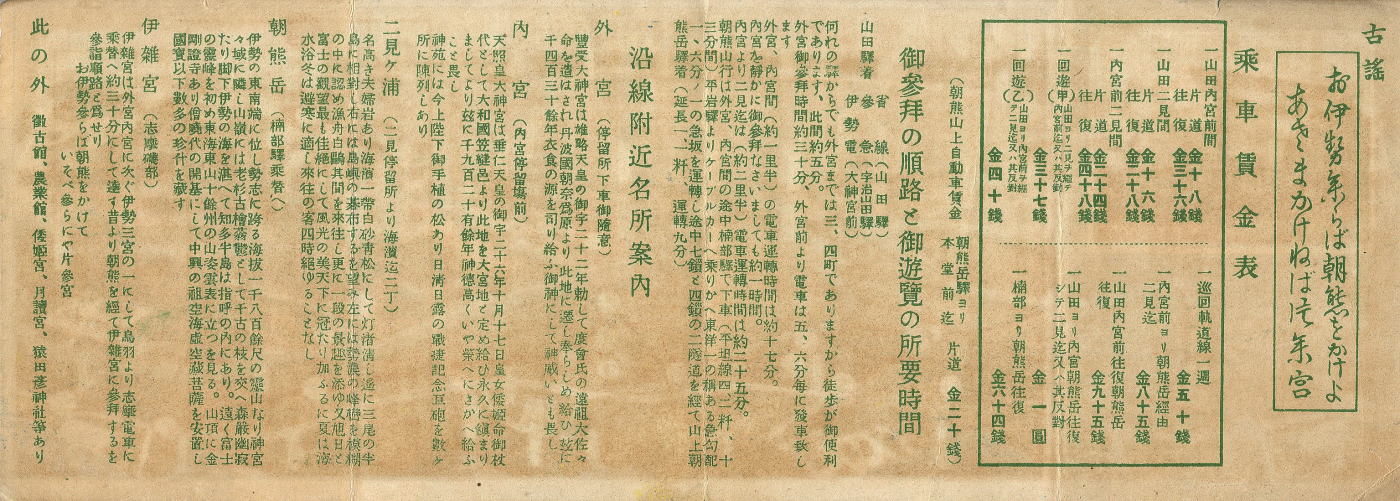 古謠
お伊勢參らば朝熊をかけよ
あさまかけねば片參宮
乘車賃金表
一山田內宮前間
片道 金十八錢
往復 金三十六錢
一山田二見間
片道 金十六錢
往復 金二十八錢
一內宮前二見間
片道 金二十四錢
往復 金四十八錢
一回遊(甲)山田ヨリ二見ヲ經テ內宮前迄又ハ其反對
金三十七錢
一回遊(乙)山田ヨリ內宮前ヲ經テ二見迄又ハ其反對
金四十錢
一巡回軌道線一週
金五十錢
一內宮前ヨリ朝熊岳經由二見迄
金八十五錢
一山田內宮前往復朝熊岳往復
金九十五錢
一山田ヨリ內宮朝熊岳往復シテ二見迄又ハ其反對
金一圓
一楠部ヨリ朝熊岳往復
金六十四錢
(朝熊山上自動車賃金 朝熊岳驛ヨリ本堂前迄 片道 金二十錢)
御參拜の順路と御遊覽の所要時間
山田驛着 省線(山田驛)
參急(宇治山田驛)
伊勢電(大神宮前)
何れの驛からでも外宮までは三、四町でありますから徒歩が御便利
であります、此間約五分。
外宮御參拜時間約三十分、外宮前より電車は五、六分每に發車致し
ます
外宮、內宮間(約一里半)の電車運轉時間は約十七分。
內宮を靜かに御參拜なさいましても約一時間。
內宮より二見迄は(約二里半)電車運轉時間は約二十五分。
朝熊山行は外宮、內宮間の途中楠部驛で下車(平坦線四、二粁、十
三分間)平岩驛よりケーブルカーへ乘りかへ東洋一の稱ある急勾配
一、六分ノ一の急坂を運轉し途中七鎧と四鎧の二隧道を經て山上朝
熊岳驛着(延長一、一粁、運轉九分)
沿線附近名所案內
外宮 (停留所下車御隨意)
豐受大神宮は雄略天皇の御宇二十二年勅して度會氏の遠祖大佐々
命を遣はされ丹波國朝奈爲原より此地に遷し奉らしめ給ひ玆に
千四百三十餘年衣食の源を司り給ふ御神にして神威いとも畏し
內宮 (內宮停留場前)
天照皇大神宮は垂仁天皇の御宇二十六年十月十七日皇女倭姬命御杖
代として大和國笠縫邑より此地を大宮地と定め給ひ永久に鎭まり
ましてより玆に千九百二十有餘年神德高くいや榮へにさか へ給ふ
こと畏し
神苑には今上陛下御手植の松あり日淸日露の戰捷記念巨砲を數ヶ
所に陳列しあり
二見ヶ浦 (二見停留所より海濱迄二丁)
名高き夫婦岩あり海濱一帶白砂靑松にして汀渚淸し遙に三尾の半
島に相對し右には島嶼の碁布するを望み左には
の中に認め漁舟白鷗其間を來往し更に一段の景趣を添ゆ又旭日と
富士の觀望最も佳絕にして風光の美天下に冠たり加ふるに夏は海
水浴冬は避寒に適し來往の客四時絕ゆることなし
朝熊岳 (楠部驛乘替へ)
伊勢の東南端に位し勢志に跨る海拔一千八百餘尺の靈山なり神宮
々域に隣し山嶺には老杉古檜蓊鬱として千古の枝を交へ森嚴幽寂
たり脚下伊勢の海を湛へて知多半島は指呼の內にあり。遠く富士
の靈峰を初め東海東山十餘州の山姿雲表に立つを見る。山頂に金
剛證寺あり僧曉代の開基にして中興の祖空海虛空藏菩薩を安置し
國寶以下數多の珍什を藏す
伊雜宮 (志摩磯部)
伊雜宮は外宮內宮に次ぐ伊勢三宮の一にして鳥羽より志摩電車に
乘替へ約三十分にして達す昔より朝熊を經て伊雜宮に參拜するを
參詣順路と爲せり
お伊勢參らば朝熊をかけて
いそべ參らにや片參宮
此の外 徵古館、農業館、倭姬宮、月讀宮、猿田彥神社等あり